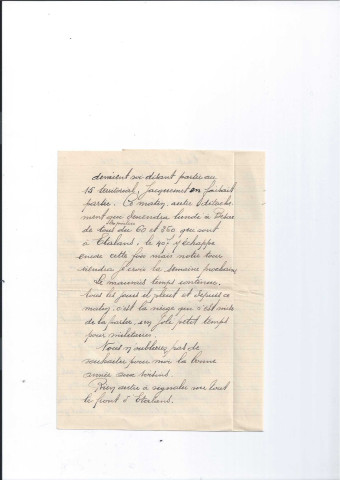 devaient soi disant partir au
15 territorial, Jacquemot en faisait
partie. Ce matin, autre détache-
ment qui descendra lundi à
de tous les du 60 et 260 qui sont
à Etalans, le 407 y échappe
encore cette fois mais notre tour
viendra je crois la semaine prochaine
Le mauvais temps continue,
tous les jours il pleut et depuis ce
matin c'est la neige qui s'est mise
de la partie, un joli petit temps
pour militaires.
Vous n'oublierez pas de
souhaiter pour moi la bonne
année aux voisins.
Rien autre à signaler sur tout
le front d'Etalans.